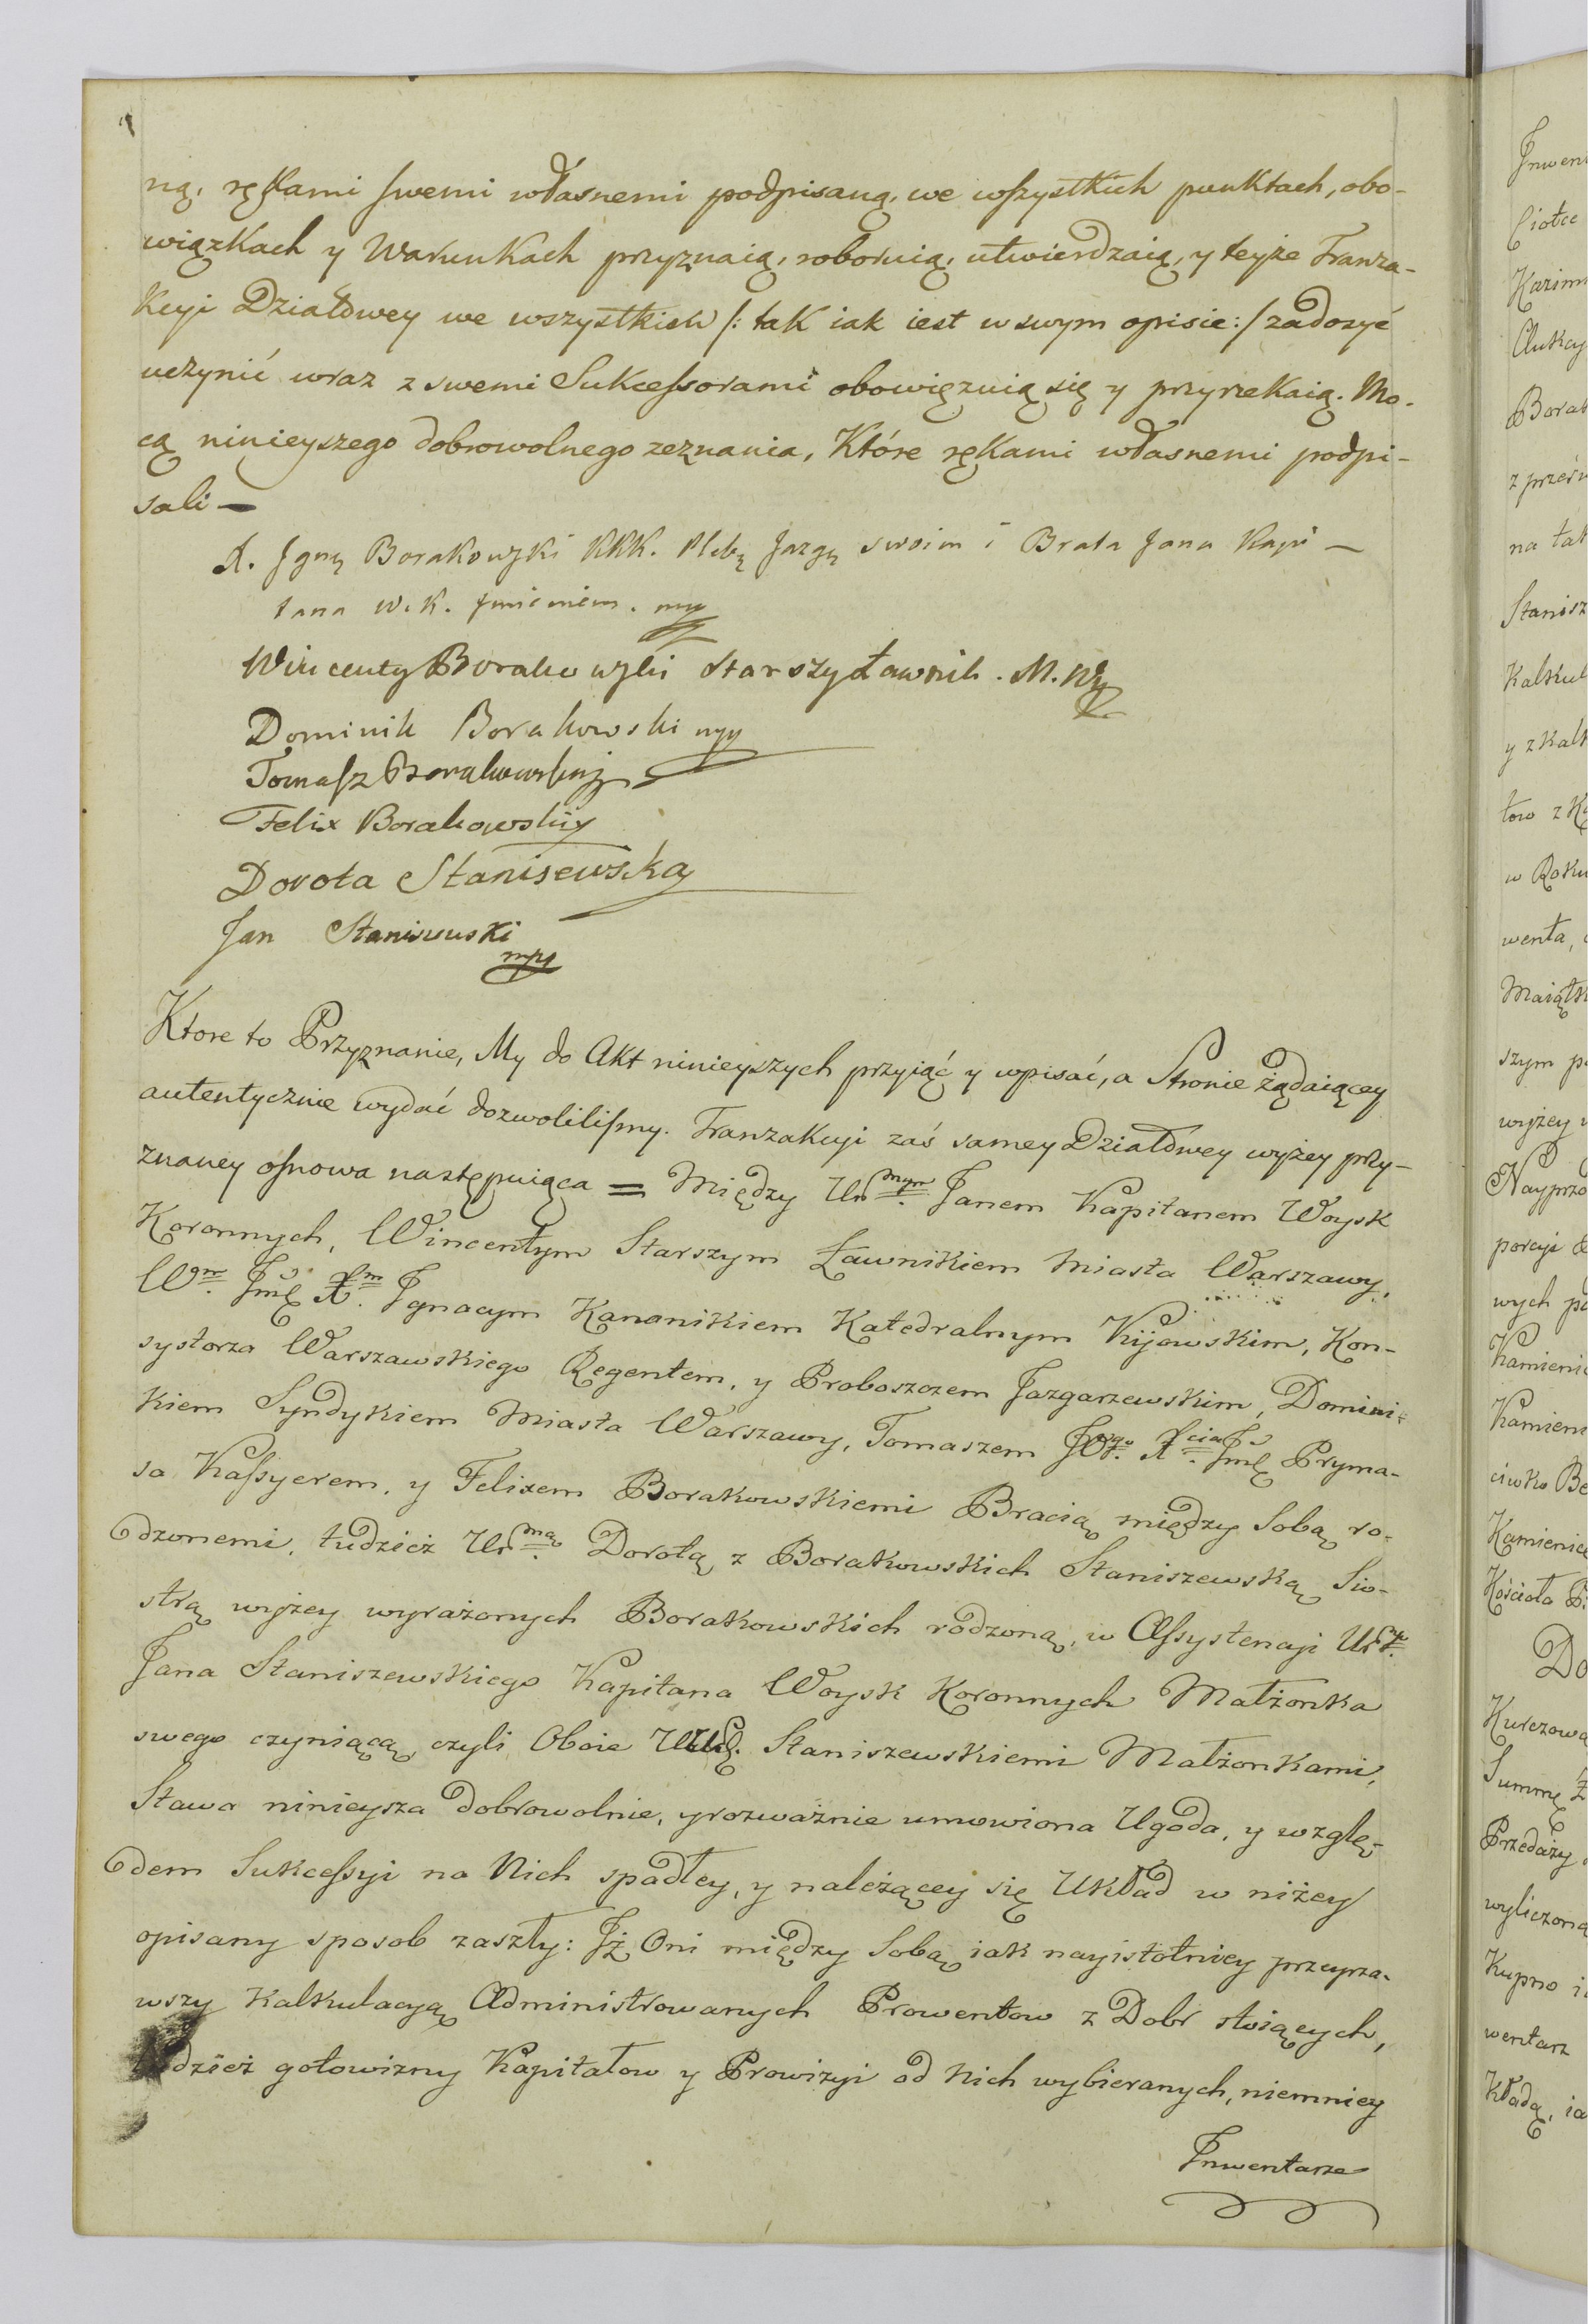 ną, rękami swemi własnemi podpisaną, we wszystkich punktach, obo-
wiązkach y Warunkach przyznaią, roboruią, utwierdzaią, y teyże Tranza-
kcyi Działowey we wszystkich /: tak iak iest w swym opisie :/ zadosyć
uczynić wraz z swemi Sukcessorami obowięzuią się y przyrzekaią. Mo-
cą ninieyszego dobrowolnego zeznania, Które rękami własnemi podpi-
sali —
X. Ignẏ Borakowski KKK. Plebą Jazgą swoim i Brata Jana Kapi —
tana W. K. Imieniem. mp
Wincenty Borakowski Starszy Ławnik. M. W.
Dominik Borakowski mpp
Tomasz Borakowski
Felix Borakowski
Dorota Stanisewska
Jan Staniewski
mpp
Ktore to Przyznanie, My do Akt ninieyszych przyiąć y wpisać, a Stronie żądaiącey
autentycznie wydać dozwolilismy. Tranzakcyi zaś samey Działowey wyżey przy-
znaney osnowa następuiąca = Między Ur mym. Janem Kapitanem Woysk
Koronnych, Wincentym Starszym Ławnikiem Miasta Warszawy,
Wm. Jmę Xm. Ignacym Kanonikiem Katedralnym Kijowskim, Kon-
systorza Warszawskiego Regentem, y Proboszczem Jazgarzewskim, Domini-
kiem Syndykiem Miasta Warszawy, Tomaszem JOgo. Xcia. Jmę Pryma-
sa Kassyerem, y Felixem Borakowskiemi Bracią między Sobą ro-
dzonemi, tudzież Ur mą. Dorotą z Borakowskich Staniszewską Sio-
strą wyżey wyrażonych Borakowskich rodzoną, w Assystencyi Ur.
Jana Staniszewskiego Kapitana Woysk Koronnych Małżonka
swego czyniącą, czyli Oboie Staniszewskiemi Małżonkami,
Stawa ninieysza dobrowolnie, y rozważnie umowiona Ugoda, y wzglę-
dem Sukcessyi na Nich spadłey, y należącey się Układ w niżey
opisany sposob zaszły: Iż Oni między Sobą iak nayistotniey przeyrza-
wszy Kalkulacyą Administrowanych Prowentow z Dobr stoiących,
tudzież gotowizny Kapitałow y Prowizyi od Nich wybieranych, niemniey
Inwentarze